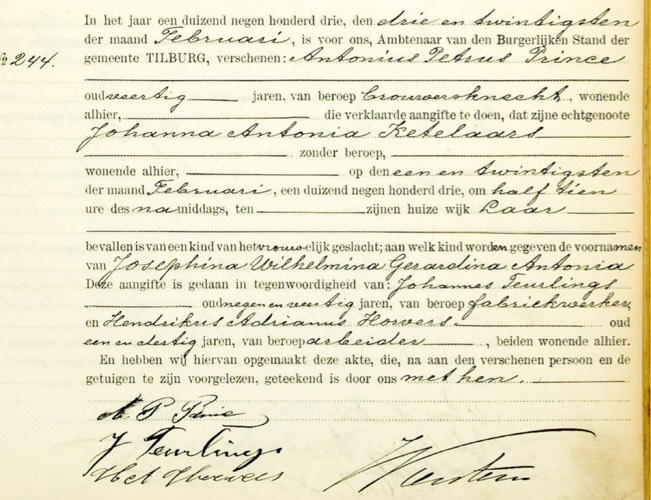 In het jaar een duizend negen honderd drie, den drie en twintigsten
der maand Februari, is voor ons, Ambtenaar van den Burgerlijken Stand der
No 244. gemeente TILBURG, verschenen: Antonius Petrus Prince
oud veertig jaren, van beroep brouwersknecht, wonende
alhier, die verklaarde aangifte te doen, dat zijne echtgenoote
Johanna Antonia Ketelaars
zonder beroep,
wonende alhier, op den een en twintigsten
der maand Februari, een duizend negen honderd drie, om half tien
ure des namiddags, ten zijnen huize wijk Laar
bevallen is van een kind van het vrouwelijk geslacht; aan welk kind worden gegeven de voornamen
van Josephina Wilhelmina Gerardina Antonia
Deze aangifte is gedaan in tegenwoordigheid van: Johannes Teurlings
oud negen en veertig jaren, van beroep fabriekwerker,
en Hendrikus Adrianus Horvers. oud
een en dertig jaren, van beroep arbeider, beiden wonende alhier.
En hebben wij hiervan opgemaakt deze akte, die, na aan den verschenen persoon en de
getuigen te zijn voorgelezen, geteekend is door ons met hen.
A. P. Prince
J Teurlings